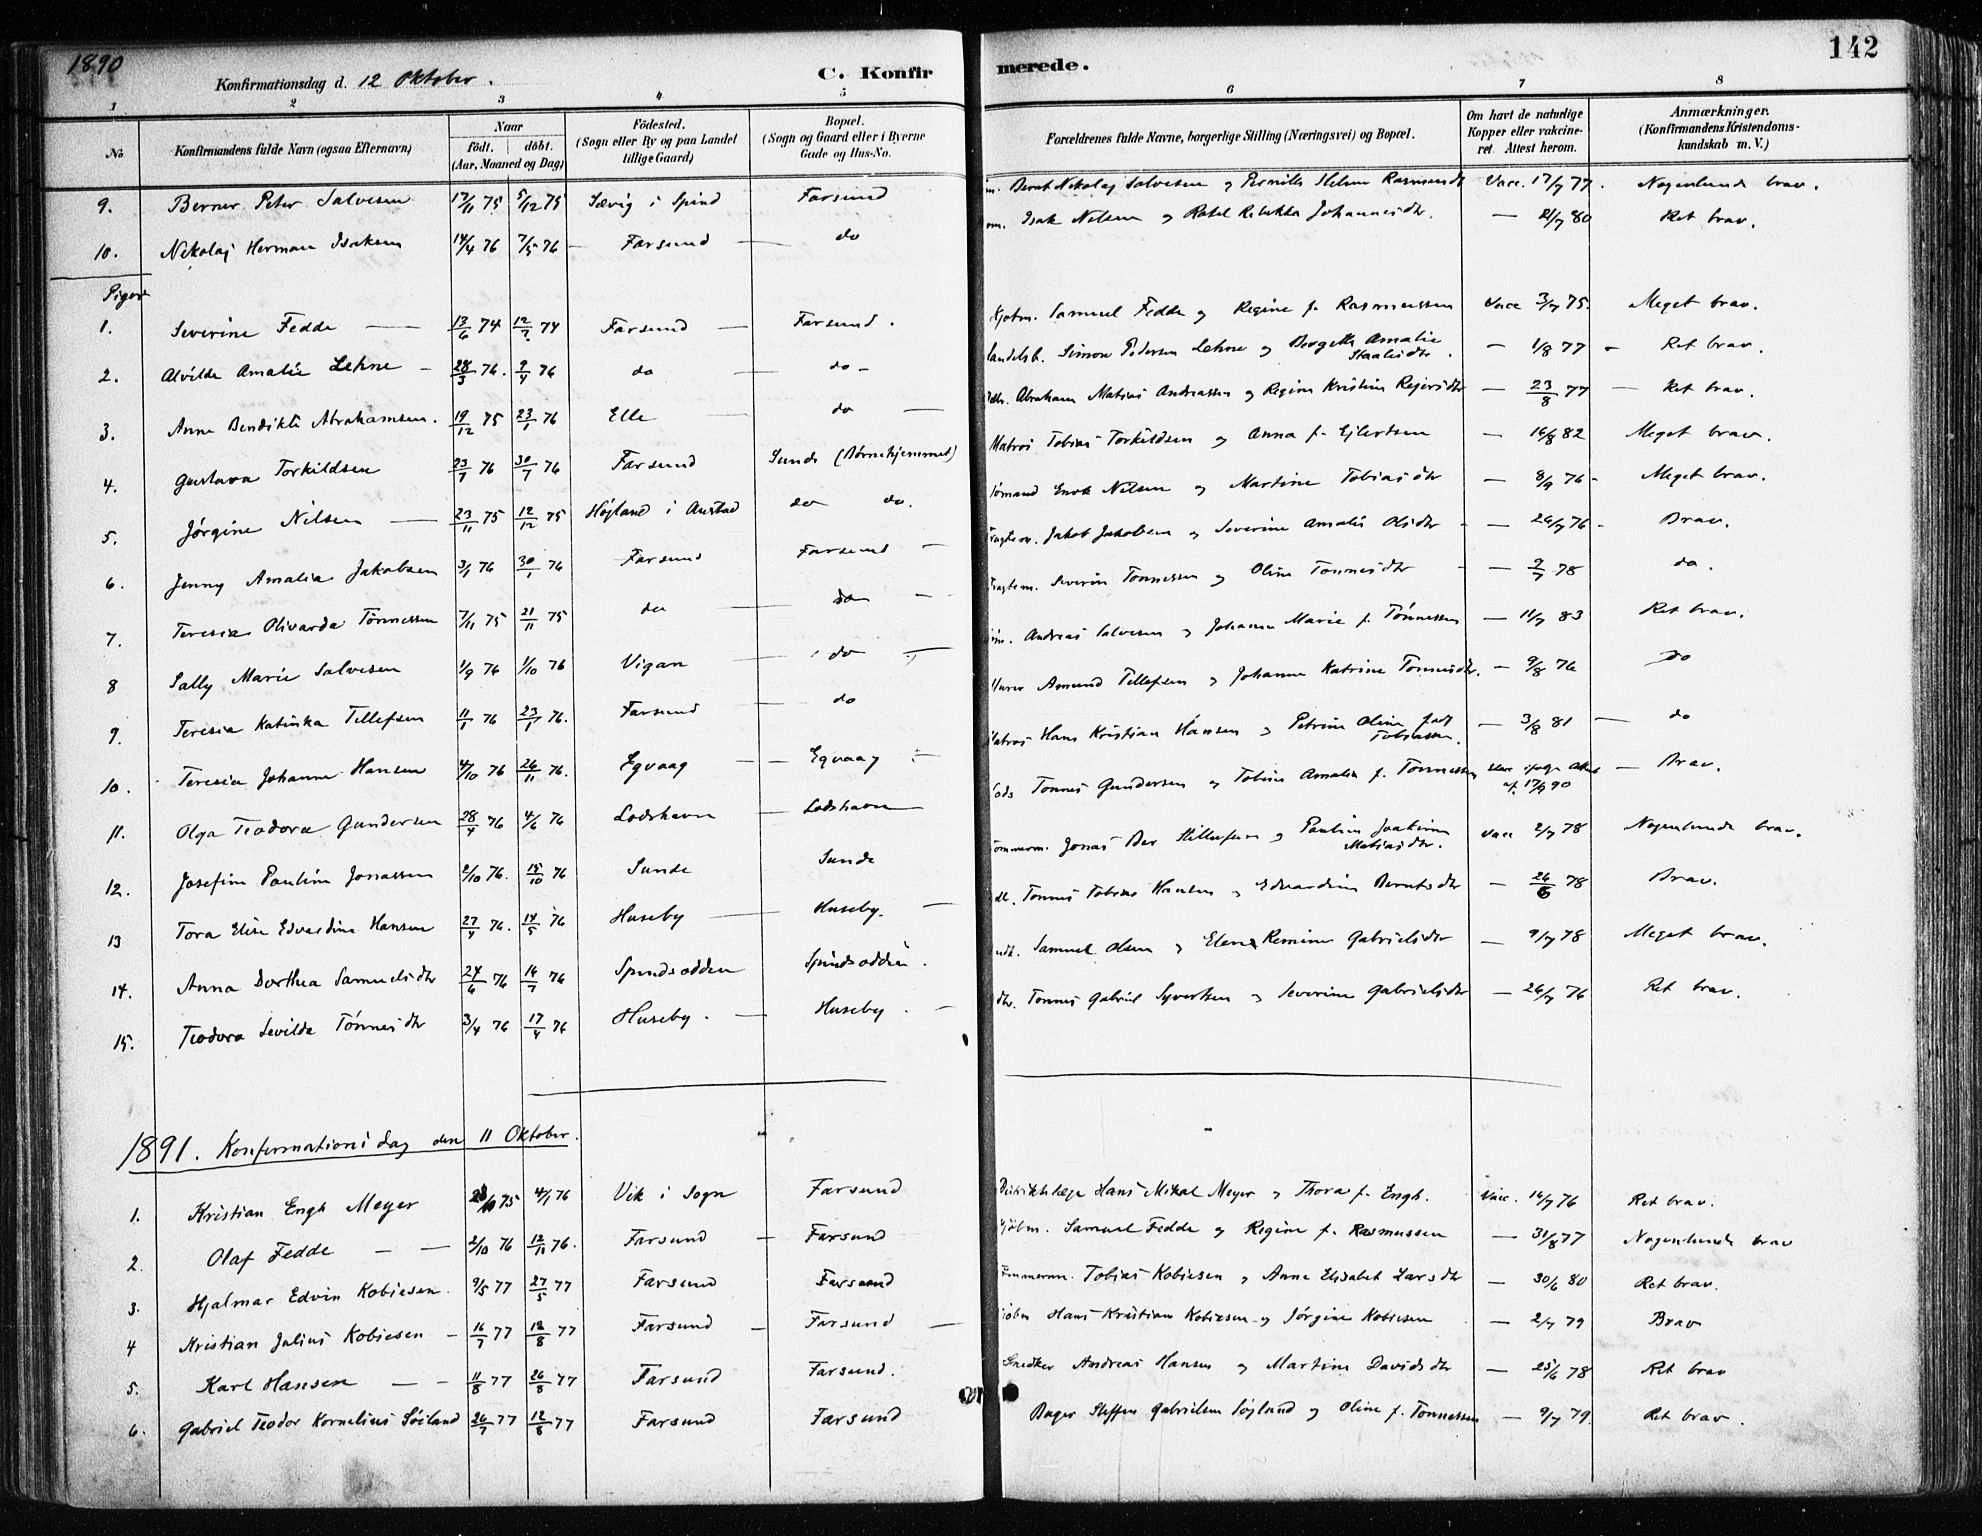 1890
Konfirmationsdag d. 12 Oktober.
C. Konfirmerede.
142
1 2 3 4 5 6 7 8
No
Konfirmandens fulde Navn (ogsaa Efternavn)
Naar
födt. döbt.
(Aar, Maaned og Dag)
Födested.
(Sogn eller By og paa Landet
tillige Gaard)
Bopæl.
(Sogn og Gaard eller i Byerne
Gade og Hus-No.
Forældrenes fulde Navne, borgerlige Stilling (Næringsvei) og Bopæl.
Om havt de naturlige
Kopper eller vakcine-
ret. Attest herom.
Anmærkninger.
(Konfirmandens Kristendoms-
kundskab m. V.)
9. Berner Peter Salvesen 17/11 75 5/12 75 Sævig i Spind Farsund Bernt Nikolaj Salvesen og Pernille Helene Rasmusdtr Vacc. 17/7 77. Nogenlunde brav.
10. Nikolaj Herman Isaksen 14/4 76 7/5 76 – Farsund – do Isak Nilsen og Rakel Rebekka Johannesdtr. – 21/7 80 Ret brav.
Piger
1. Severine Fedde — 13/6 74 12/7 74 Farsund – Farsund. Kjøbm. Samuel Fedde og Regine f. Rasmussen Vacc 3/7 75. Meget brav.
2. Alvilde Amalie Lehne – 28/3 76. 9/4 76 do – do – Handelsb. Simon Pedersen Lehne og Bergette Amalie Staalesdtr. – 1/8 77 – Ret brav.
3. Anne Bendikte Abrahamsen. 19/12 75 23/1 76 Elle – do – Abraham Matias Andreassen og Regine Kristine Rejersdtr – 23/8 77 – Ret brav.
4. Gustava Torkildsen 23/7 76 30/7 76 Farsund Sunde (Børnehjemmet) Matros Tobias Torkildsen og Anna f. Ejlertsen – 16/8 82 Meget brav.
5. Jørgine Nilsen — 23/11 75 12/12 75 Højland i Austad do do. Sømand Enok Nilsen og Martine Tobiasdtr – 8/9 76 – Meget brav.
6. Jenny Amalia Jakobsen 3/1 76 30/1 76 Farsund Farsund – Fragtem. Jakob Jakobsen og Severine Amalie Olsdtr – 26/7 76 – Brav.
7. Teresia Olivarda Tönnessen 7/11 75 21/11 75 do – do – Fragtem. Severin Tonnessen og Oline Tonnesdtr – 9/7 78 do.
8 Sally Marie Salvesen 1/9 76 1/10 76 Vigan – do – Andreas Salvesen og Johanne Marie f. Tönnessen – 11/7 83 Ret brav.
9. Teresia Katinka Tellefsen 11/1 76 23/1 76. Farsund – do Murer Amund Tellefsen og Johanne Katrine Tönnesdtr. – 9/8 76 do
10. Teresia Johanne Hansen 4/10 76 26/11 76. Eqvaag – Eqvaag – Matros Hans Kristian Hansen og Petrine Oline født Tobiassen. – 3/8 81 – do
11. Olga Teodora Gundersen 28/4 76 4/6 76 Lodshavn – Lodshavn Lods Tonnes Gundersen og Tobine Amalia f. Tonnessen Vacc ifølge Attest af 17/9 90 – Brav.
12. Josefine Pauline Jonassen 2/10 76. 15/10 76 Sunde Sunde Tömmerm. Jonas Ber Stillufsen og Pauline Joakime Matiasdtr. Vacc 2/7 78 Nogenlunde brav.
13 Tora Elise Edvardine Hansen 27/4 76. 14/5 76 Huseby – Huseby. – Tonnes Tobias Hansen og Edvardine Berntsdtr – 26/6 78 Brav.
14. Anna Dorthea Samuelsdtr 24/6 76 16/7 76 Spindsodden Spindsodden. Samuel Olsen og Elene Remine Gabrielsdtr – 9/7 78 Meget brav.
15. Teodora Sevilde Tönnesdtr 3/4 76 17/4 76 Huseby. – Huseby. – Tonnes Gabriel Syvertsen og Severine Gabrielsdtr – 26/7 76 Ret brav.
1891. Konfirmationsdag den 11 Oktober.
1. Kristian Engh Meyer 28/10 75 4/1 76 Vik i Sogn Farsund Distriktslæge Hans Mikal Meyer og Thora f. Engh. Vacc. 14/7 76 Ret brav.
2. Olaf Fedde — — 2/10 76 12/11 76. Farsund – Farsund Kjöbm. Samuel Fedde og Regine f. Rasmussen – 31/8 77 Nogenlunde brav
3. Hjalmar Edvin Kobiesen. 9/5 77 27/5 77 Farsund Farsund Tømmerm. Tobias Kobiesen og Anne Elisabet Larsdtr – 30/6 80 Ret brav.
4 Kristian Julius Kobiesen – 16/7 77 12/8 77 Farsund – Farsund – Kjøbm Hans Kristian Kobiesen og Jörgine Kobiesen – 2/7 79 Brav
5. Karl Hansen — — 11/8 77 26/8 77 Farsund Farsund. Snedker Andreas Hansen og Martine Davidsdtr – 25/6 78 Ret brav
6. Gabriel Teodor Kornelius Söiland 26/7 77 12/8 77 Farsund Farsund Bager Steffen Gabrielsen Söjland og Oline f. Tonnessen – 9/7 79. Ret brav.